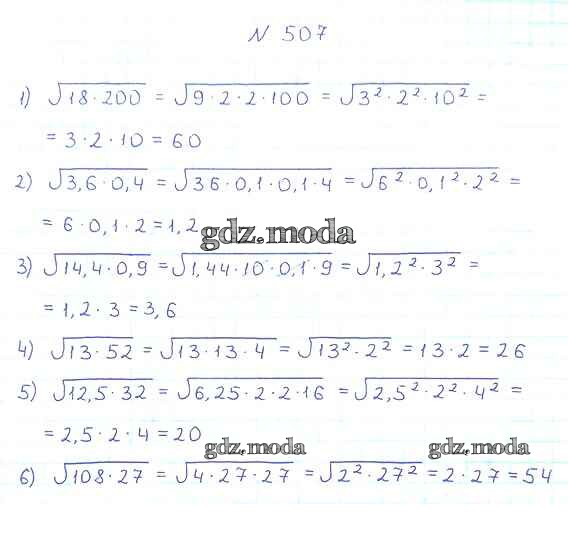 N 507
1) √18·200 = √9·2·2·100 = √3²·2²·10² =
= 3·2·10 = 60
2) √3,6·0,4 = √36·0,1·0,1·4 = √6²·0,1²·2² =
= 6·0,1·2 = 1,2
gdz.moda
3) √14,4·0,9 = √1,44·10·0,1·9 = √1,2²·3² =
= 1,2·3 = 3,6
4) √13·52 = √13·13·4 = √13²·2² = 13·2 = 26
5) √12,5·32 = √6,25·2·2·16 = √2,5²·2²·4² =
= 2,5·2·4 = 20
gdz.moda gdz.moda
6) √108·27 = √4·27·27 = √2²·27² = 2·27 = 54